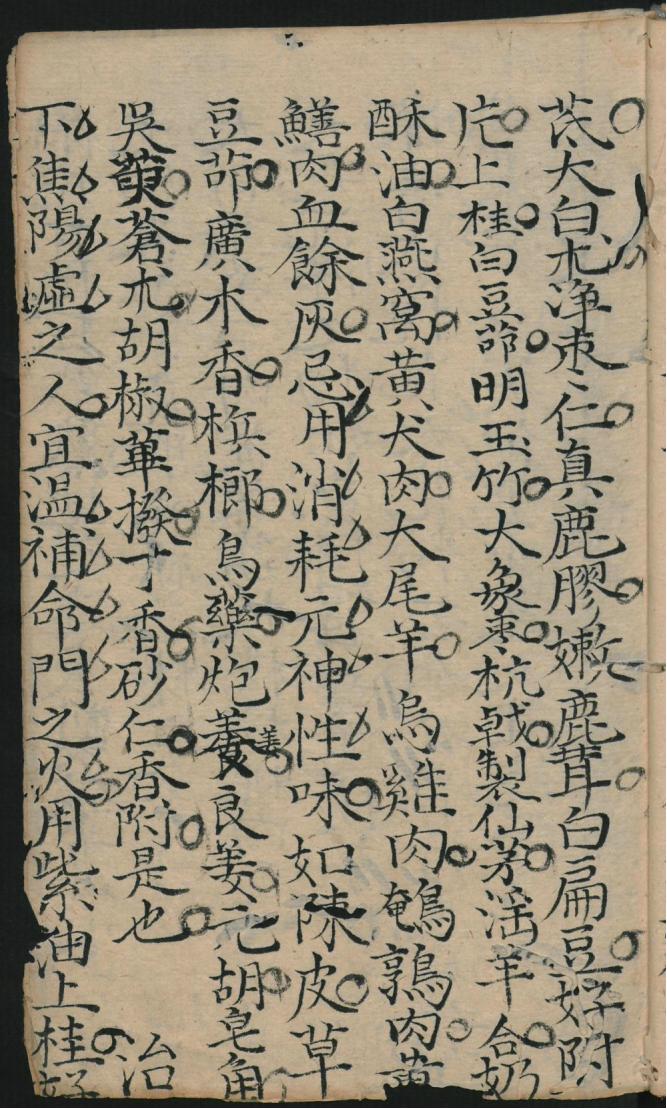 芪大白朮淨枣仁真鹿膠嫩鹿茸白扁豆好附
片上桂白豆茆明玉竹大象棗杭戟製仙茅淫羊合奶
酥油白燕窩黄犬肉大尾羊烏雞肉鵪鶉肉黄
鱔肉血餘灰忌用消耗元神性味如陳皮草
豆茆廣木香梹榔烏藥炮姜良姜元胡皂角
吳萸蒼朮胡椒蓽撥丁香砂仁香附是也 治
下焦陽虛之人宜温補命門之火用紫油上桂好